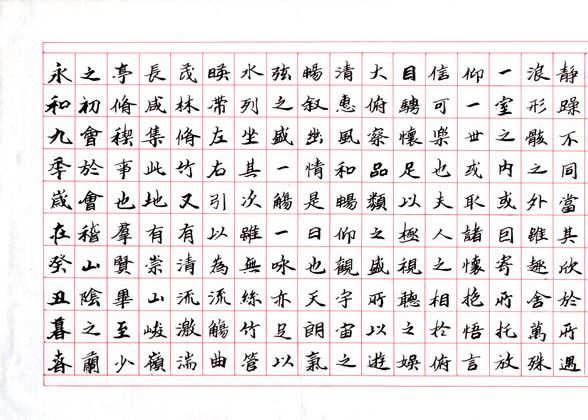 永和九年歲在癸丑暮春
之初會於會稽山陰之蘭
亭脩禊事也羣賢畢至少
長咸集此地有崇山峻嶺
茂林脩竹又有清流激湍
暎帶左右引以為流觴曲
水列坐其次雖無絲竹管
弦之盛一觴一咏亦足以
暢叙幽情是日也天朗氣
清惠風和暢仰觀宇宙之
大俯察品類之盛所以遊
目騁懷足以極視聽之娛
信可樂也夫人之相於俯
仰一世或取諸懷抱悟言
一室之內或因寄所托放
浪形骸之外雖趣舍萬殊
靜躁不同當其欣於所遇